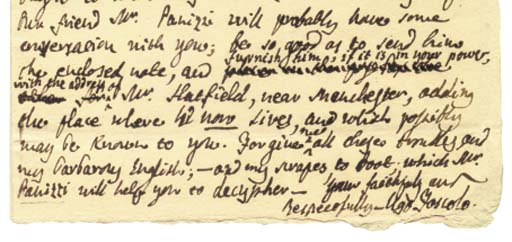 Our friend Mr. Panizzi will probably have some
conversation with you; be so good as to send him
the enclosed note, and furnish him, if it is in your power,
with the address of Mr. Hatfield, near Manchester, adding
the place where he now lives, and which possibly
may be known to you. Forgive me all these troubles and
my barbarous English; — and my scrapes to boot which Mr.
Panizzi will help you to decypher — Your faithfuly and
Respectfully — Ugo Foscolo.